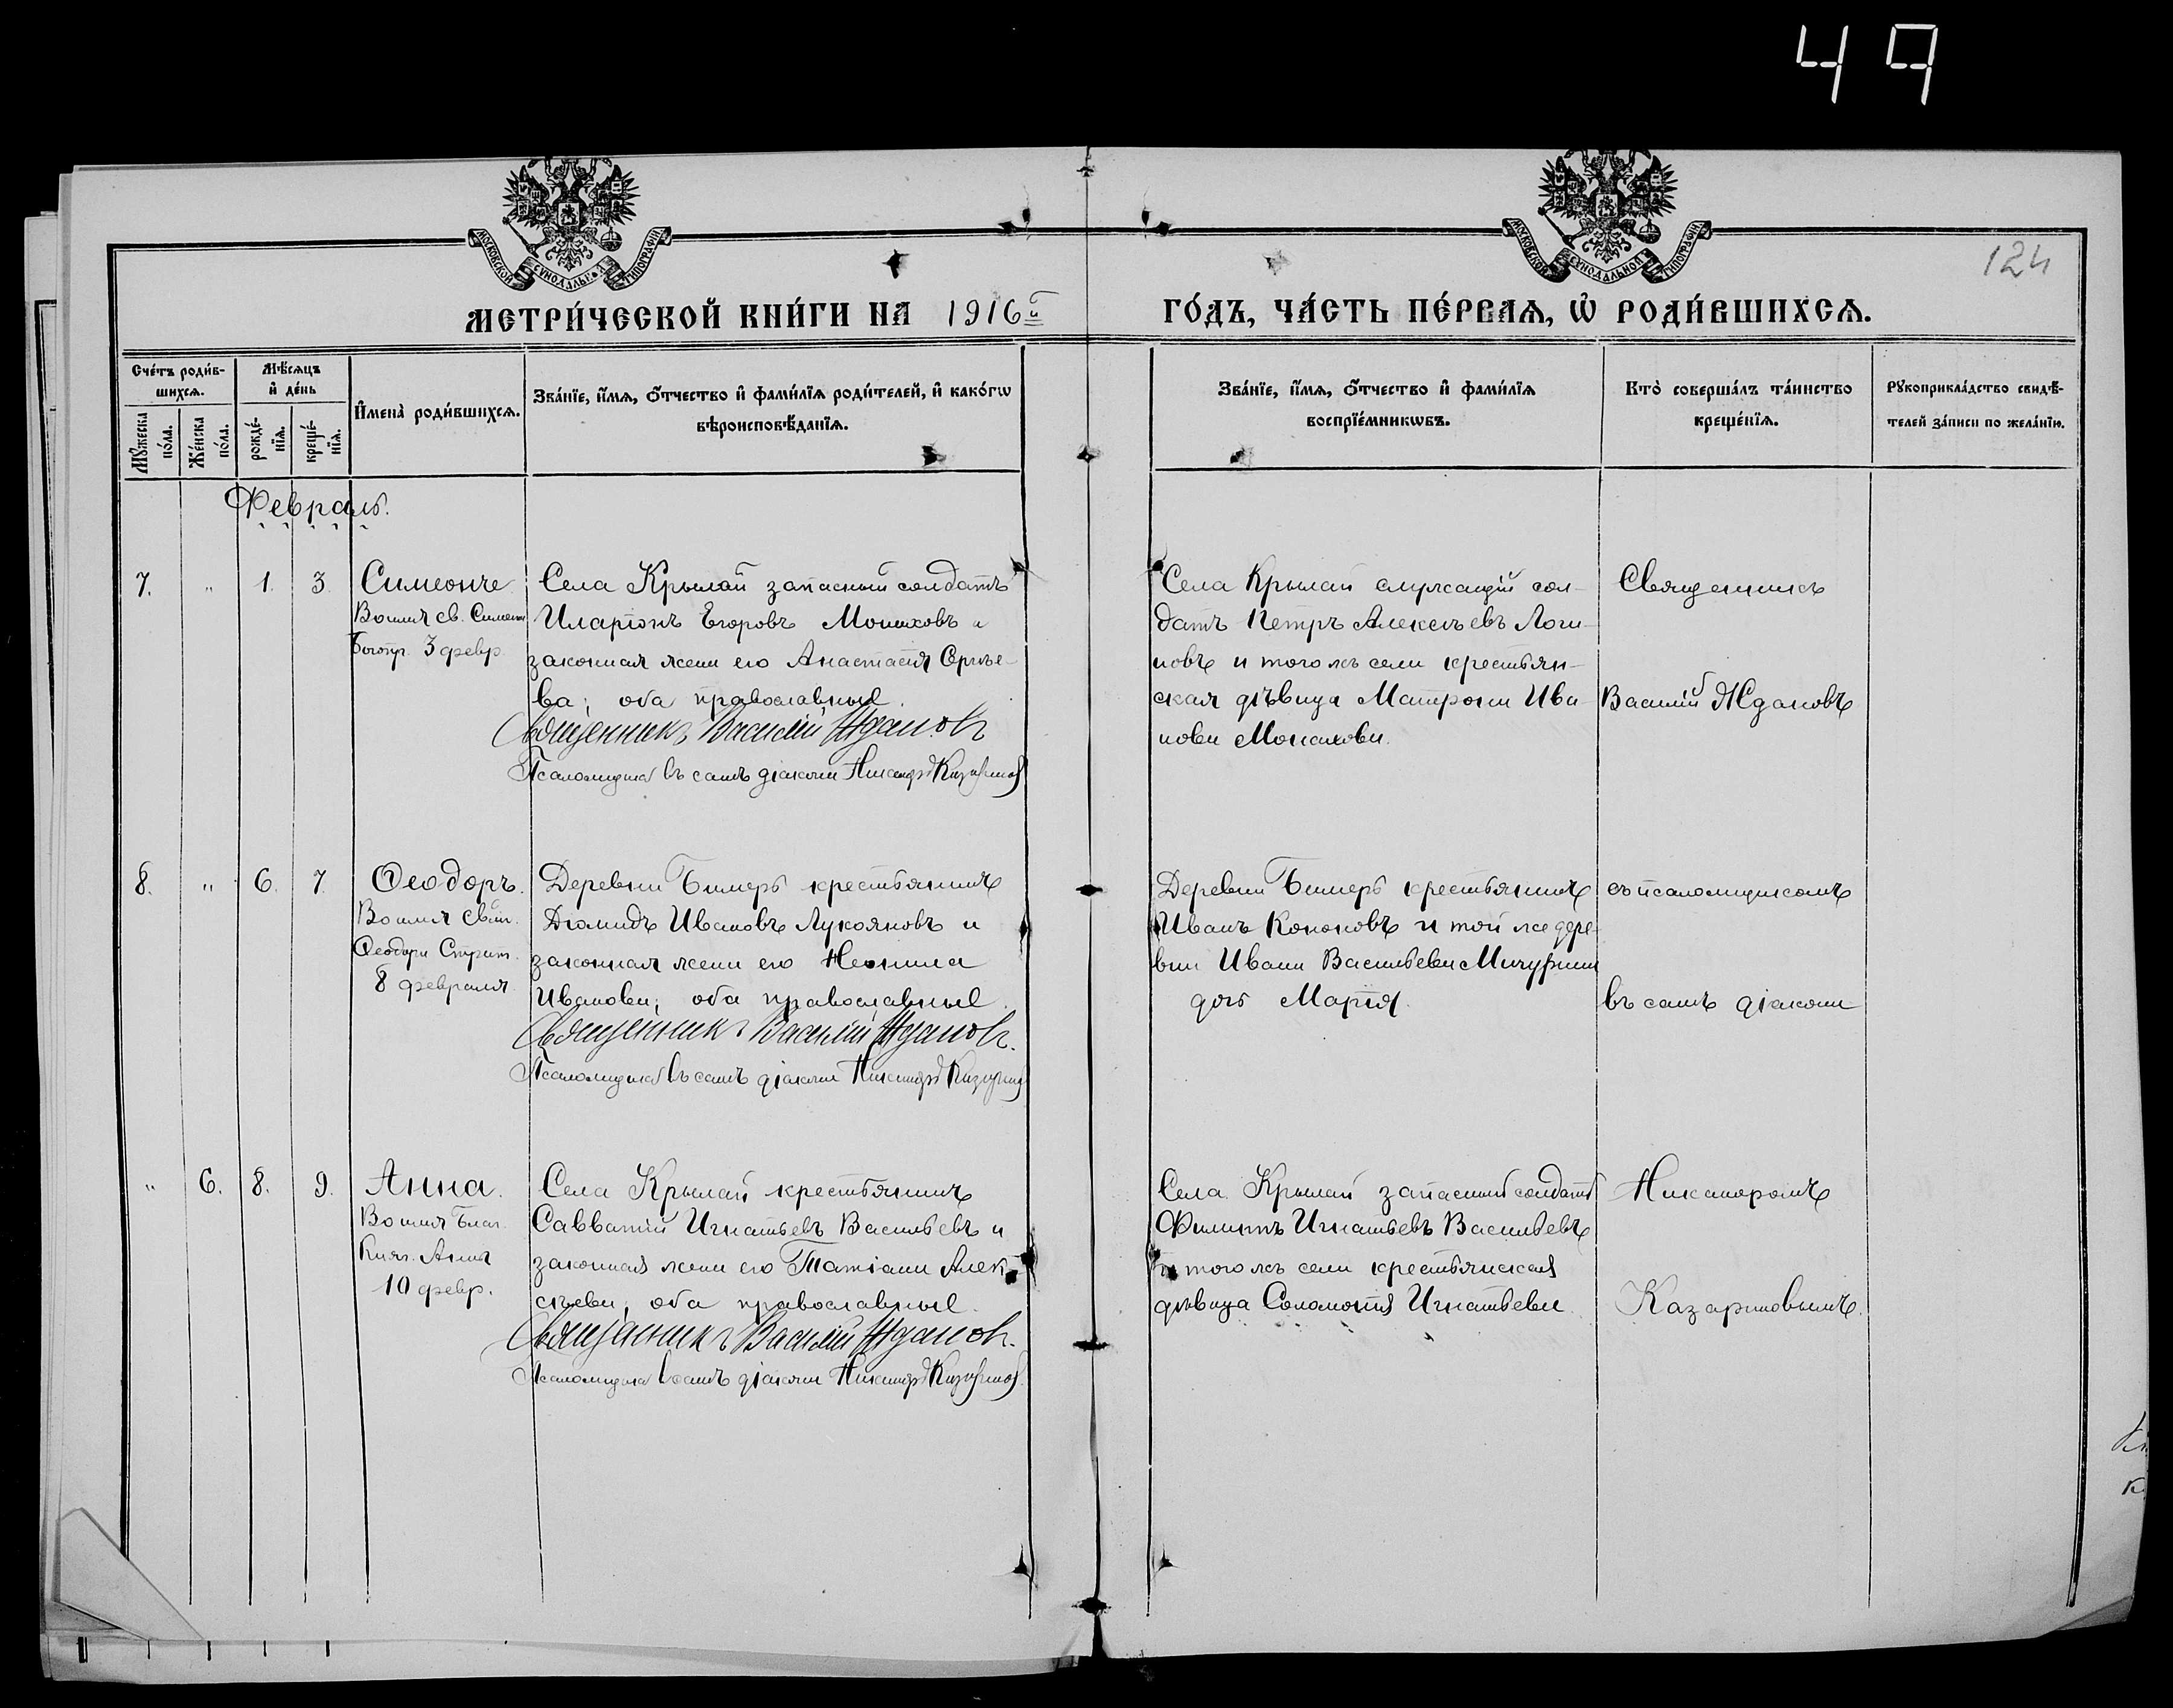 49
МОСКОВСКОЙ СѴНОДАЛЬНОЙ ТИПОГРАФІИ
МОСКОВСКОЙ СѴНОДАЛЬНОЙ ТИПОГРАФІИ
124
МЕТРИ́ЧЕСКОЙ КНИ́ГИ НА 1916й
ГО́ДЪ, ЧА́СТЬ ПЕ́РВАЯ, Ѡ҆ РОДИ́ВШИХСѦ.
Сче́тъ роди́в-
шихсѧ.
Мꙋжеска по́ла.
Же́нска по́ла.
Мѣ́сѧцъ
и҆ де́нь
рожде́-
нїѧ.
креще́-
нїѧ.
И҆мена̀ роди́вшихсѧ.
Зва́нїе, и҆́мѧ, ѻ҆́тчество и҆ фами́лїѧ роди́телей, и҆ како́гѡ
вѣроисповѣ́данїѧ.
Зва́нїе, и҆́мѧ, ѻ҆́тчество и҆ фами́лїѧ
воспрїе́мникѡвъ.
Кто̀ соверша́лъ та́инство
креще́нїѧ.
Рꙋкоприкла́дство свидѣ́-
телей за́писи по жела́нїю.
Февраль.
7. " 1. 3. Симеонъ
Во имя св. Симеон
Богопр. 3 февр.
Села Крылай запасный солдатъ
Иларіонъ Егоровъ Монаховъ и
законная жена его Анастасія Сергѣе-
ва; оба православные.
Священникъ Василій Ждановъ
Псаломщикъ въ санѣ діакона Никаноръ Казариновъ
Села Крылай служащій сол-
датъ Петръ Алексѣевъ Логи-
новъ и того жъ села крестьян-
ская дѣвица Матрона Ива-
нова Монахова.
Священникъ
Василій Ждановъ
8. " 6. 7. Ѳеодоръ.
Во имя Свят.
Ѳеодора Страт.
8 февраля.
Деревни Бимерь крестьянинъ
Діомидъ Ивановъ Лукояновъ и
законная жена его Неонила
Иванова; оба православные.
Священникъ Василій Ждановъ.
Псаломщикъ въ санѣ діакона Никаноръ Казаринов
Деревни Бимерь крестьянинъ
Иванъ Кононовъ и той же дере-
вни Ивана Васильева Мичурина
дочь Марія.
съ псаломщикомъ
въ санѣ діакона
" 6. 8. 9. Анна.
Во имя Благ.
Княг. Анны
10 февр.
Села Крылай крестьянинъ
Савватій Игнатьевъ Васильевъ и
законная жена его Татіана Алек-
сѣева; оба православные.
Священникъ Василій Ждановъ.
Псаломщикъ въ санѣ діакона Никаноръ Казариновъ.
Села Крылай запасный солдатъ
Филиппъ Игнатьевъ Васильевъ
и того жъ села крестьянская
дѣвица Соломонія Игнатьева.
Никаноромъ
Казариновымъ.